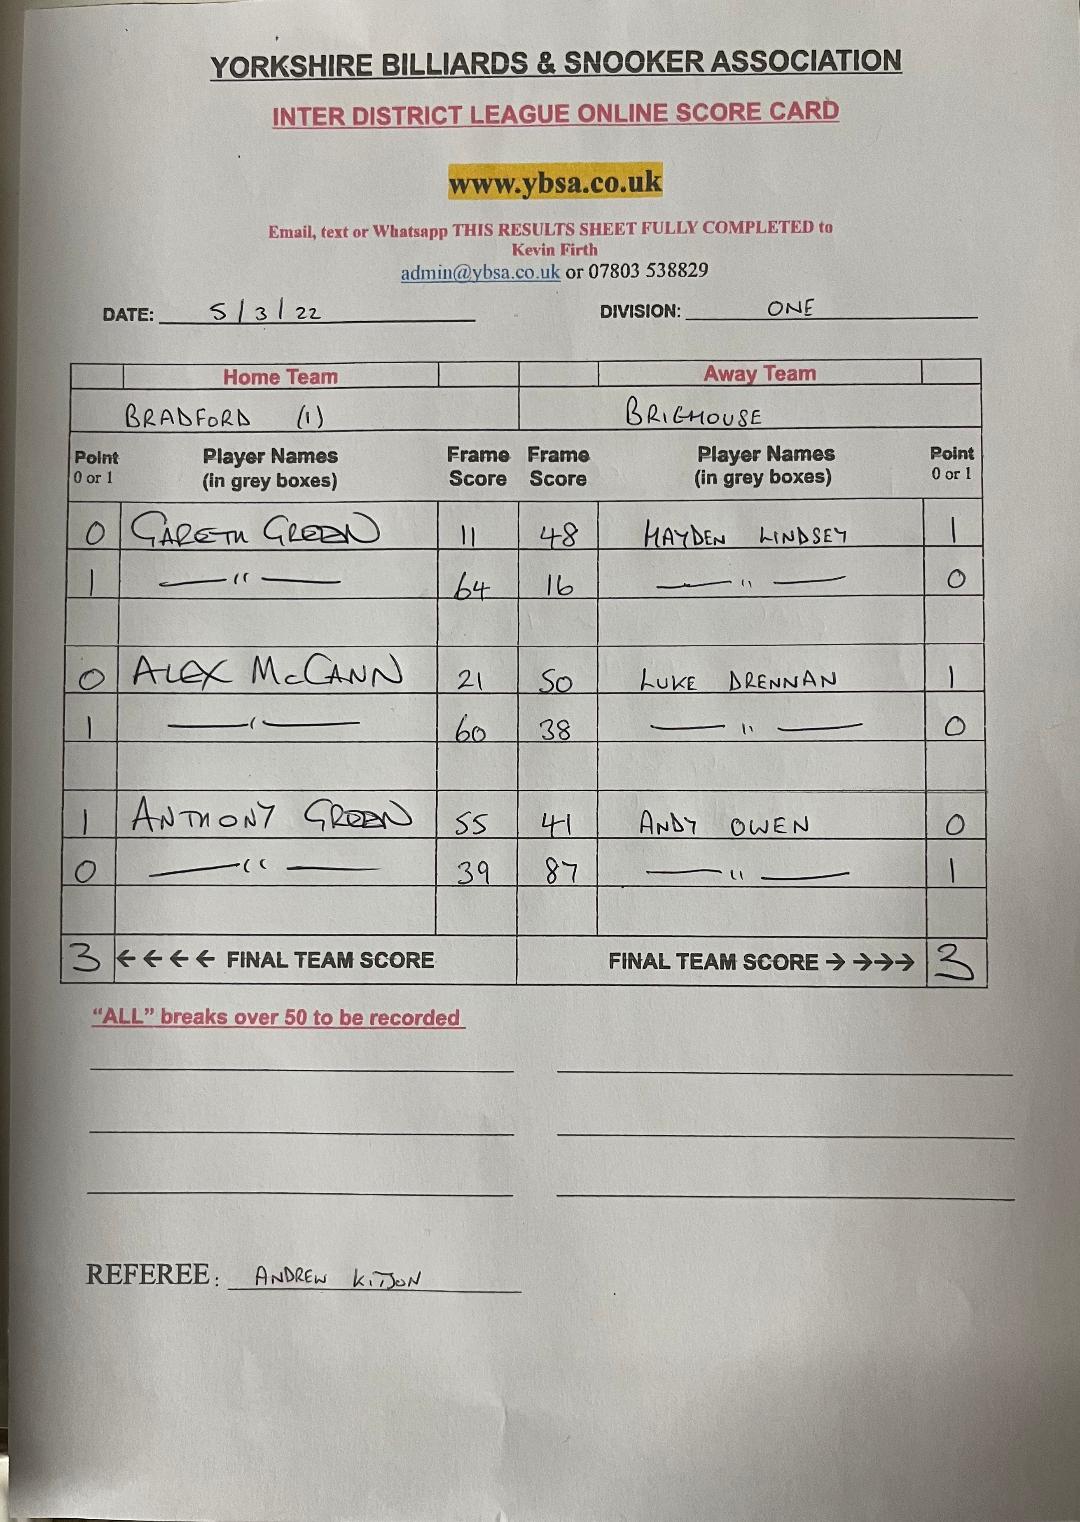 YORKSHIRE BILLIARDS & SNOOKER ASSOCIATION
INTER DISTRICT LEAGUE ONLINE SCORE CARD
www.ybsa.co.uk
Email, text or Whatsapp THIS RESULTS SHEET FULLY COMPLETED to
Kevin Firth
admin@ybsa.co.uk or 07803 538829
DATE: 5/3/22 DIVISION: ONE
Home Team Away Team
BRADFORD (1) BRIGHOUSE
Point Player Names Frame Frame Player Names Point
0 or 1 (in grey boxes) Score Score (in grey boxes) 0 or 1
0 GARETH GREEN 11 48 HAYDEN LINDSEY 1
1 — " — 64 16 — " — 0
0 ALEX McCANN 21 50 LUKE DRENNAN 1
1 — " — 60 38 — " — 0
1 ANTHONY GREEN 55 41 ANDY OWEN 0
0 — " — 39 87 — " — 1
3 ←←←← FINAL TEAM SCORE FINAL TEAM SCORE →→→→ 3
“ALL” breaks over 50 to be recorded
REFEREE: ANDREW KITSON